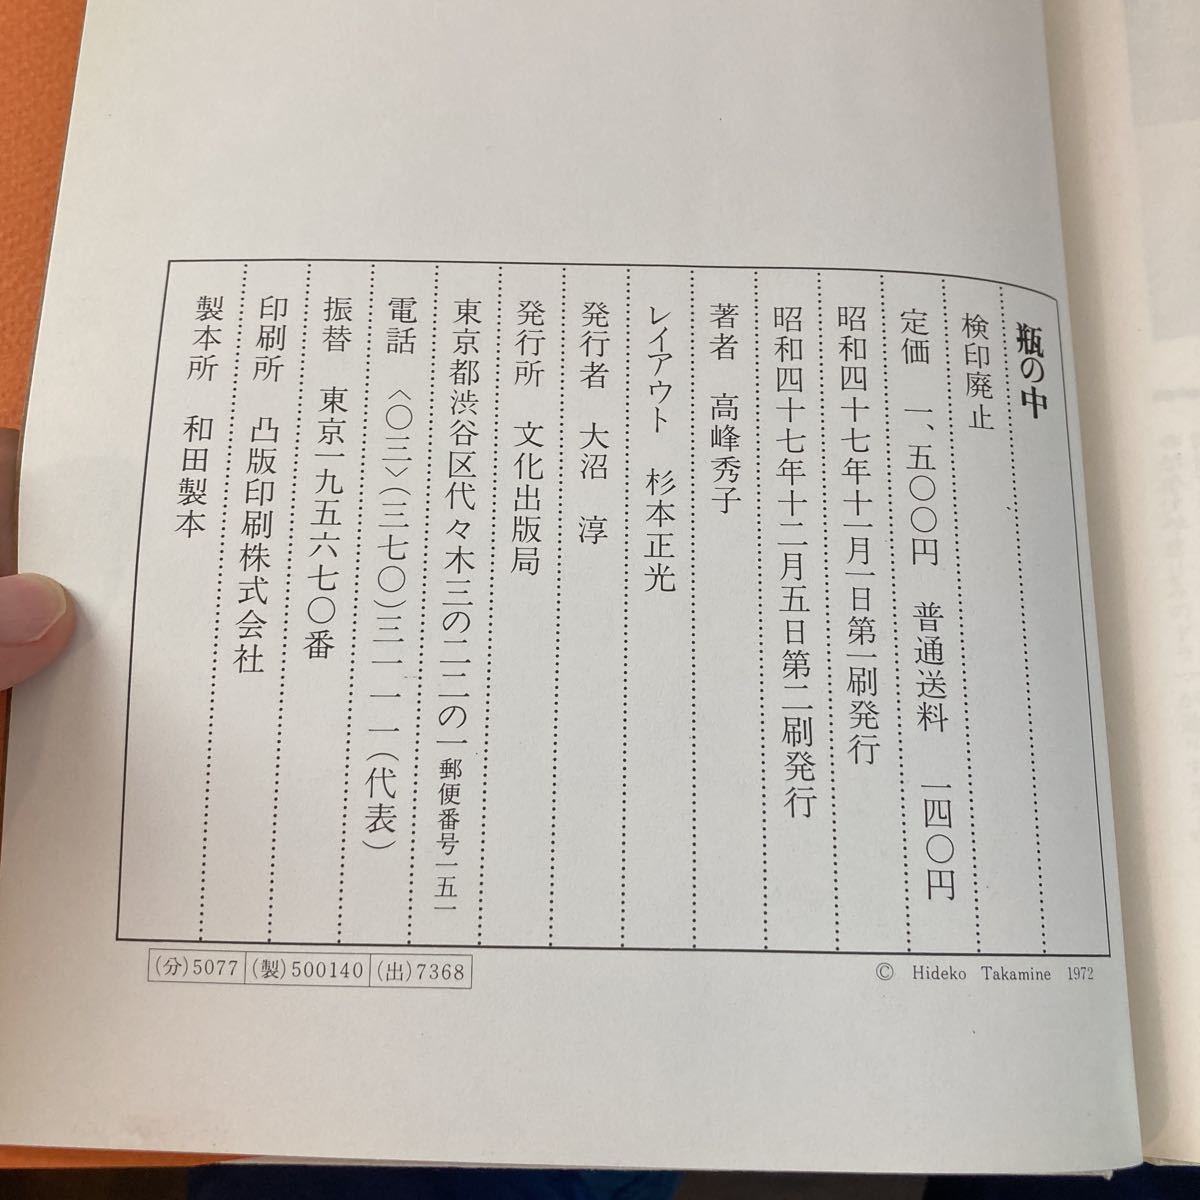 瓶の中
検印廃止
定価　一、五〇〇円　普通送料　一四〇円
昭和四十七年十一月一日第一刷発行
昭和四十七年十二月五日第二刷発行
著者　高峰秀子
レイアウト　杉本正光
発行者　大沼　淳
発行所　文化出版局
東京都渋谷区代々木三の二二の一郵便番号一五一
電話　〈〇三〉(三七〇)三一一一(代表)
振替　東京一九五六七〇番
印刷所　凸版印刷株式会社
製本所　和田製本
(分)5077 (製)500140 (出)7368
© Hideko Takamine 1972